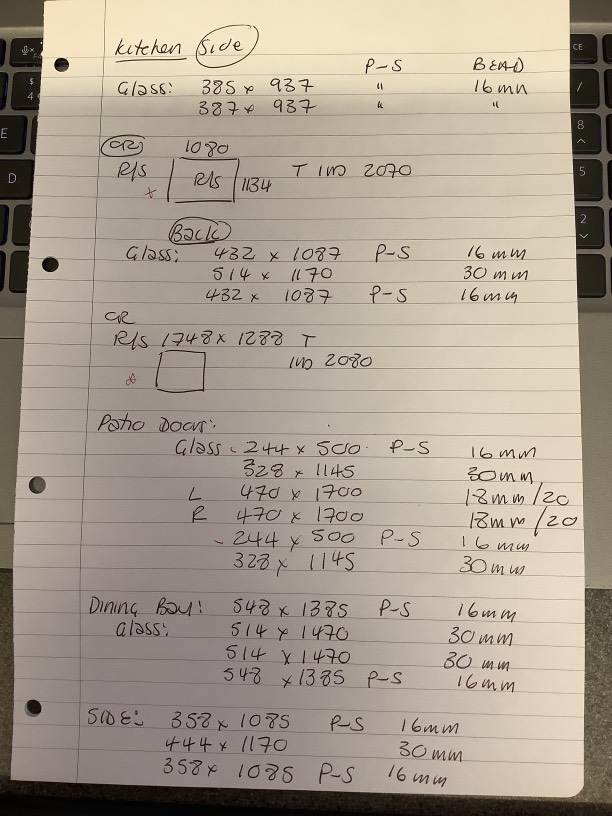 Kitchen Side
P-S BEAD
Glass: 385 x 937 " 16mm
387 x 937 " "
GR 1080
R/S R/S 1134 T IND 2070
Back
Glass: 432 x 1087 P-S 16mm
514 x 1170 30mm
432 x 1087 P-S 16mm
GR
R/S 1748 x 1288 T
IND 2080
Patio Doors:
Glass - 244 x 500 P-S 16mm
328 x 1145 30mm
L 470 x 1700 18mm/20
R 470 x 1700 18mm/20
- 244 x 500 P-S 16mm
328 x 1145 30mm
Dining Bay: 548 x 1385 P-S 16mm
Glass: 514 x 1470 30mm
514 x 1470 30mm
548 x 1385 P-S 16mm
SIDE: 358 x 1085 P-S 16mm
444 x 1170 30mm
358 x 1085 P-S 16mm